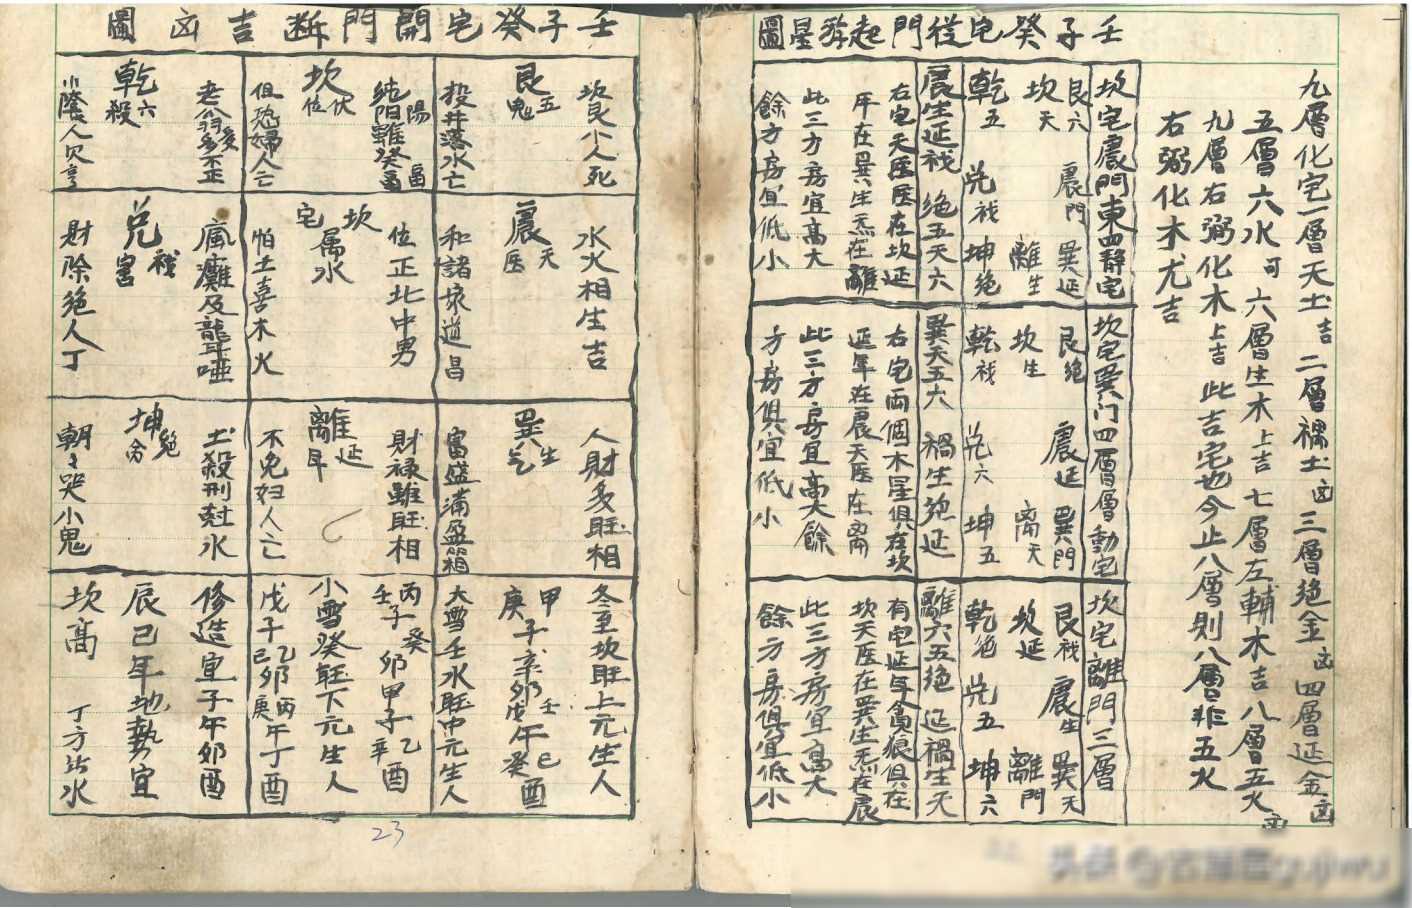 壬子癸宅從門起游星圖
九層化宅一層天土吉 二層禍土凶 三層絕金凶 四層延金凶
五層六水可 六層生木上吉 七層左輔木吉 八層五火凶
九層右弼化木上吉 此吉宅也今止八層則八層非五火
右弼化木尤吉
坎宅震門東四靜宅
艮六 震門 巽延
坎天 離生
乾五 兌祸 坤絕
震生延祸絕五天六
右宅天医医在坎延
年在巽生炁在離
此三方房宜高大
餘方房宜低小
坎宅巽门四層層動宅
艮絕 震延 巽門
坎生 离天
乾祸 兌六 坤五
巽天五六禍生絕延
右宅両個木星俱在坎
延年在震天医在离
此三方房宜高大餘
方房俱宜低小
坎宅離門三層
艮祸 震生 巽天
坎延 離門
乾絕 兌五 坤六
離六五絕延禍生天
有宅延年貪狼俱在
坎天医在巽生炁在震
此三方房宜高大
餘方房俱宜低小
壬子癸宅開門断吉凶圖
坎艮小人死
艮五鬼
投井落水亡
水火相生吉
震天医
和諸家道昌
人財多旺相
巽生气
富盛滿盈箱
冬至坎旺上元生人
甲子辛卯戊午癸酉
庚 壬 己
大雪壬水旺中元生人
純阳難癸
坎伏位
但恐婦人亡
位正北中男
坎宅属水
怕土喜木火
財禄雖旺相
離延年
不免妇人亡
丙 癸 乙
壬子 卯甲子 辛酉
小雪癸旺下元生人
戊子 乙卯 丙午丁酉
己 庚
老翁多
乾六殺
小隂人欠亨
瘋癱及龍耳啞
兌祸害
財除絕人丁
土殺刑尅水
坤絕命
朝々哭小鬼
修造宜子午卯酉
辰巳年地勢宜
坎高 丁方出水
23